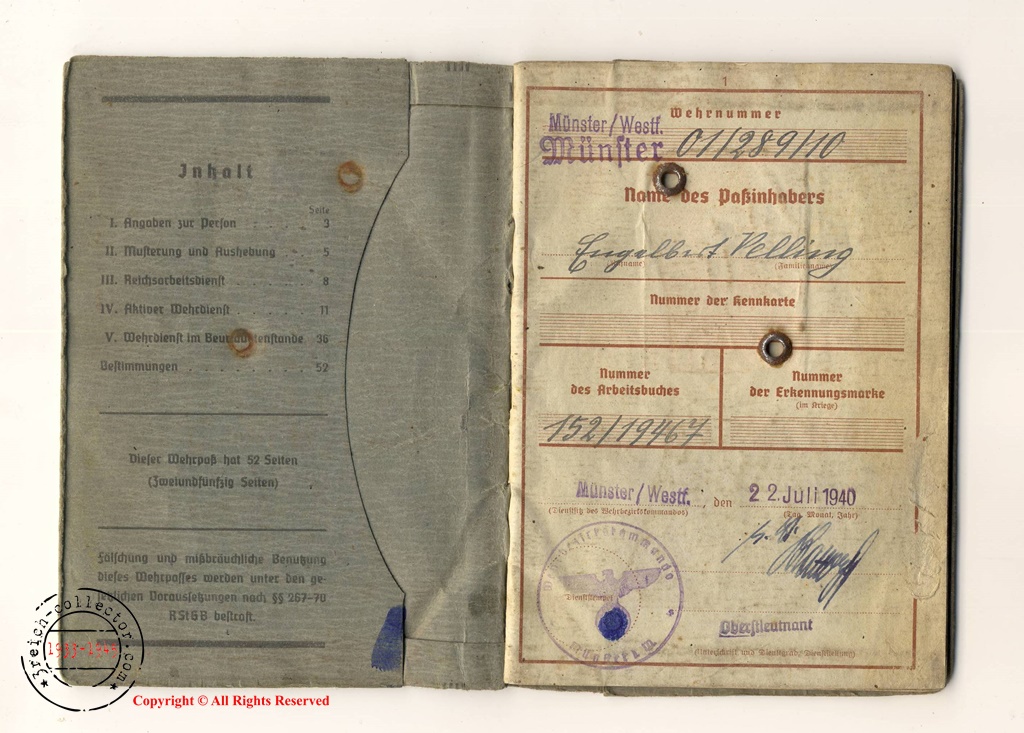 Inhalt
Seite
I. Angaben zur Person . . . . . 3
II. Musterung und Aushebung . . 5
III. Reichsarbeitsdienst . . . . . 8
IV. Aktiver Wehrdienst . . . . . 11
V. Wehrdienst im 36
Bestimmungen . . . . . 52
Dieser Wehrpaß hat 52 Seiten
(Zweiundfünfzig Seiten)
Fälschung und mißbräuchliche Benutzung
dieses Wehrpasses werden unter den ge-
setzlichen Voraussetzungen nach §§ 267-70
RStGB bestraft.
3reich-collector.com
1933-1945
Copyright © All Rights Reserved
1
Wehrnummer
Münster/Westf.
Münster 01/289/10
Name des Paßinhabers
Engelbert
(Familienname)
Nummer der Kennkarte
Nummer
des Arbeitsbuches
152/19467
Nummer
der Erkennungsmarke
(im Kriege)
Münster/Westf., den 22. Juli 1940
(Dienstsitz des Wehrbezirkskommandos) (Tag, Monat, Jahr)
(Dienststempel)
Oberstleutnant
(Unterschrift und Dienstgrad, Dienststellung)